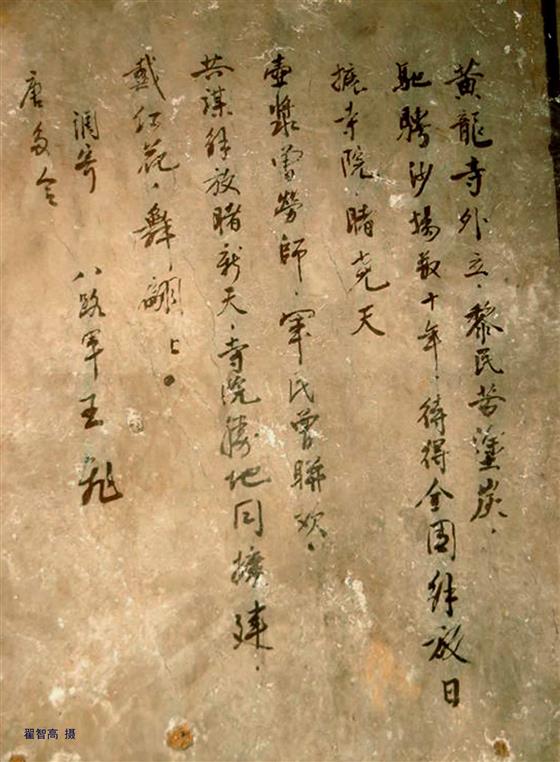 黄龍寺外立，黎民苦塗炭，
馳騁沙場数十年，待得全國解放日
擴寺院，睹尧天
壺漿曾勞師，軍民曾聯欢，
共謀解放睹新天，寺院勝地同擴建，
戴红花，舞翩々。
調寄 八路军王
唐多令
翟智高 摄